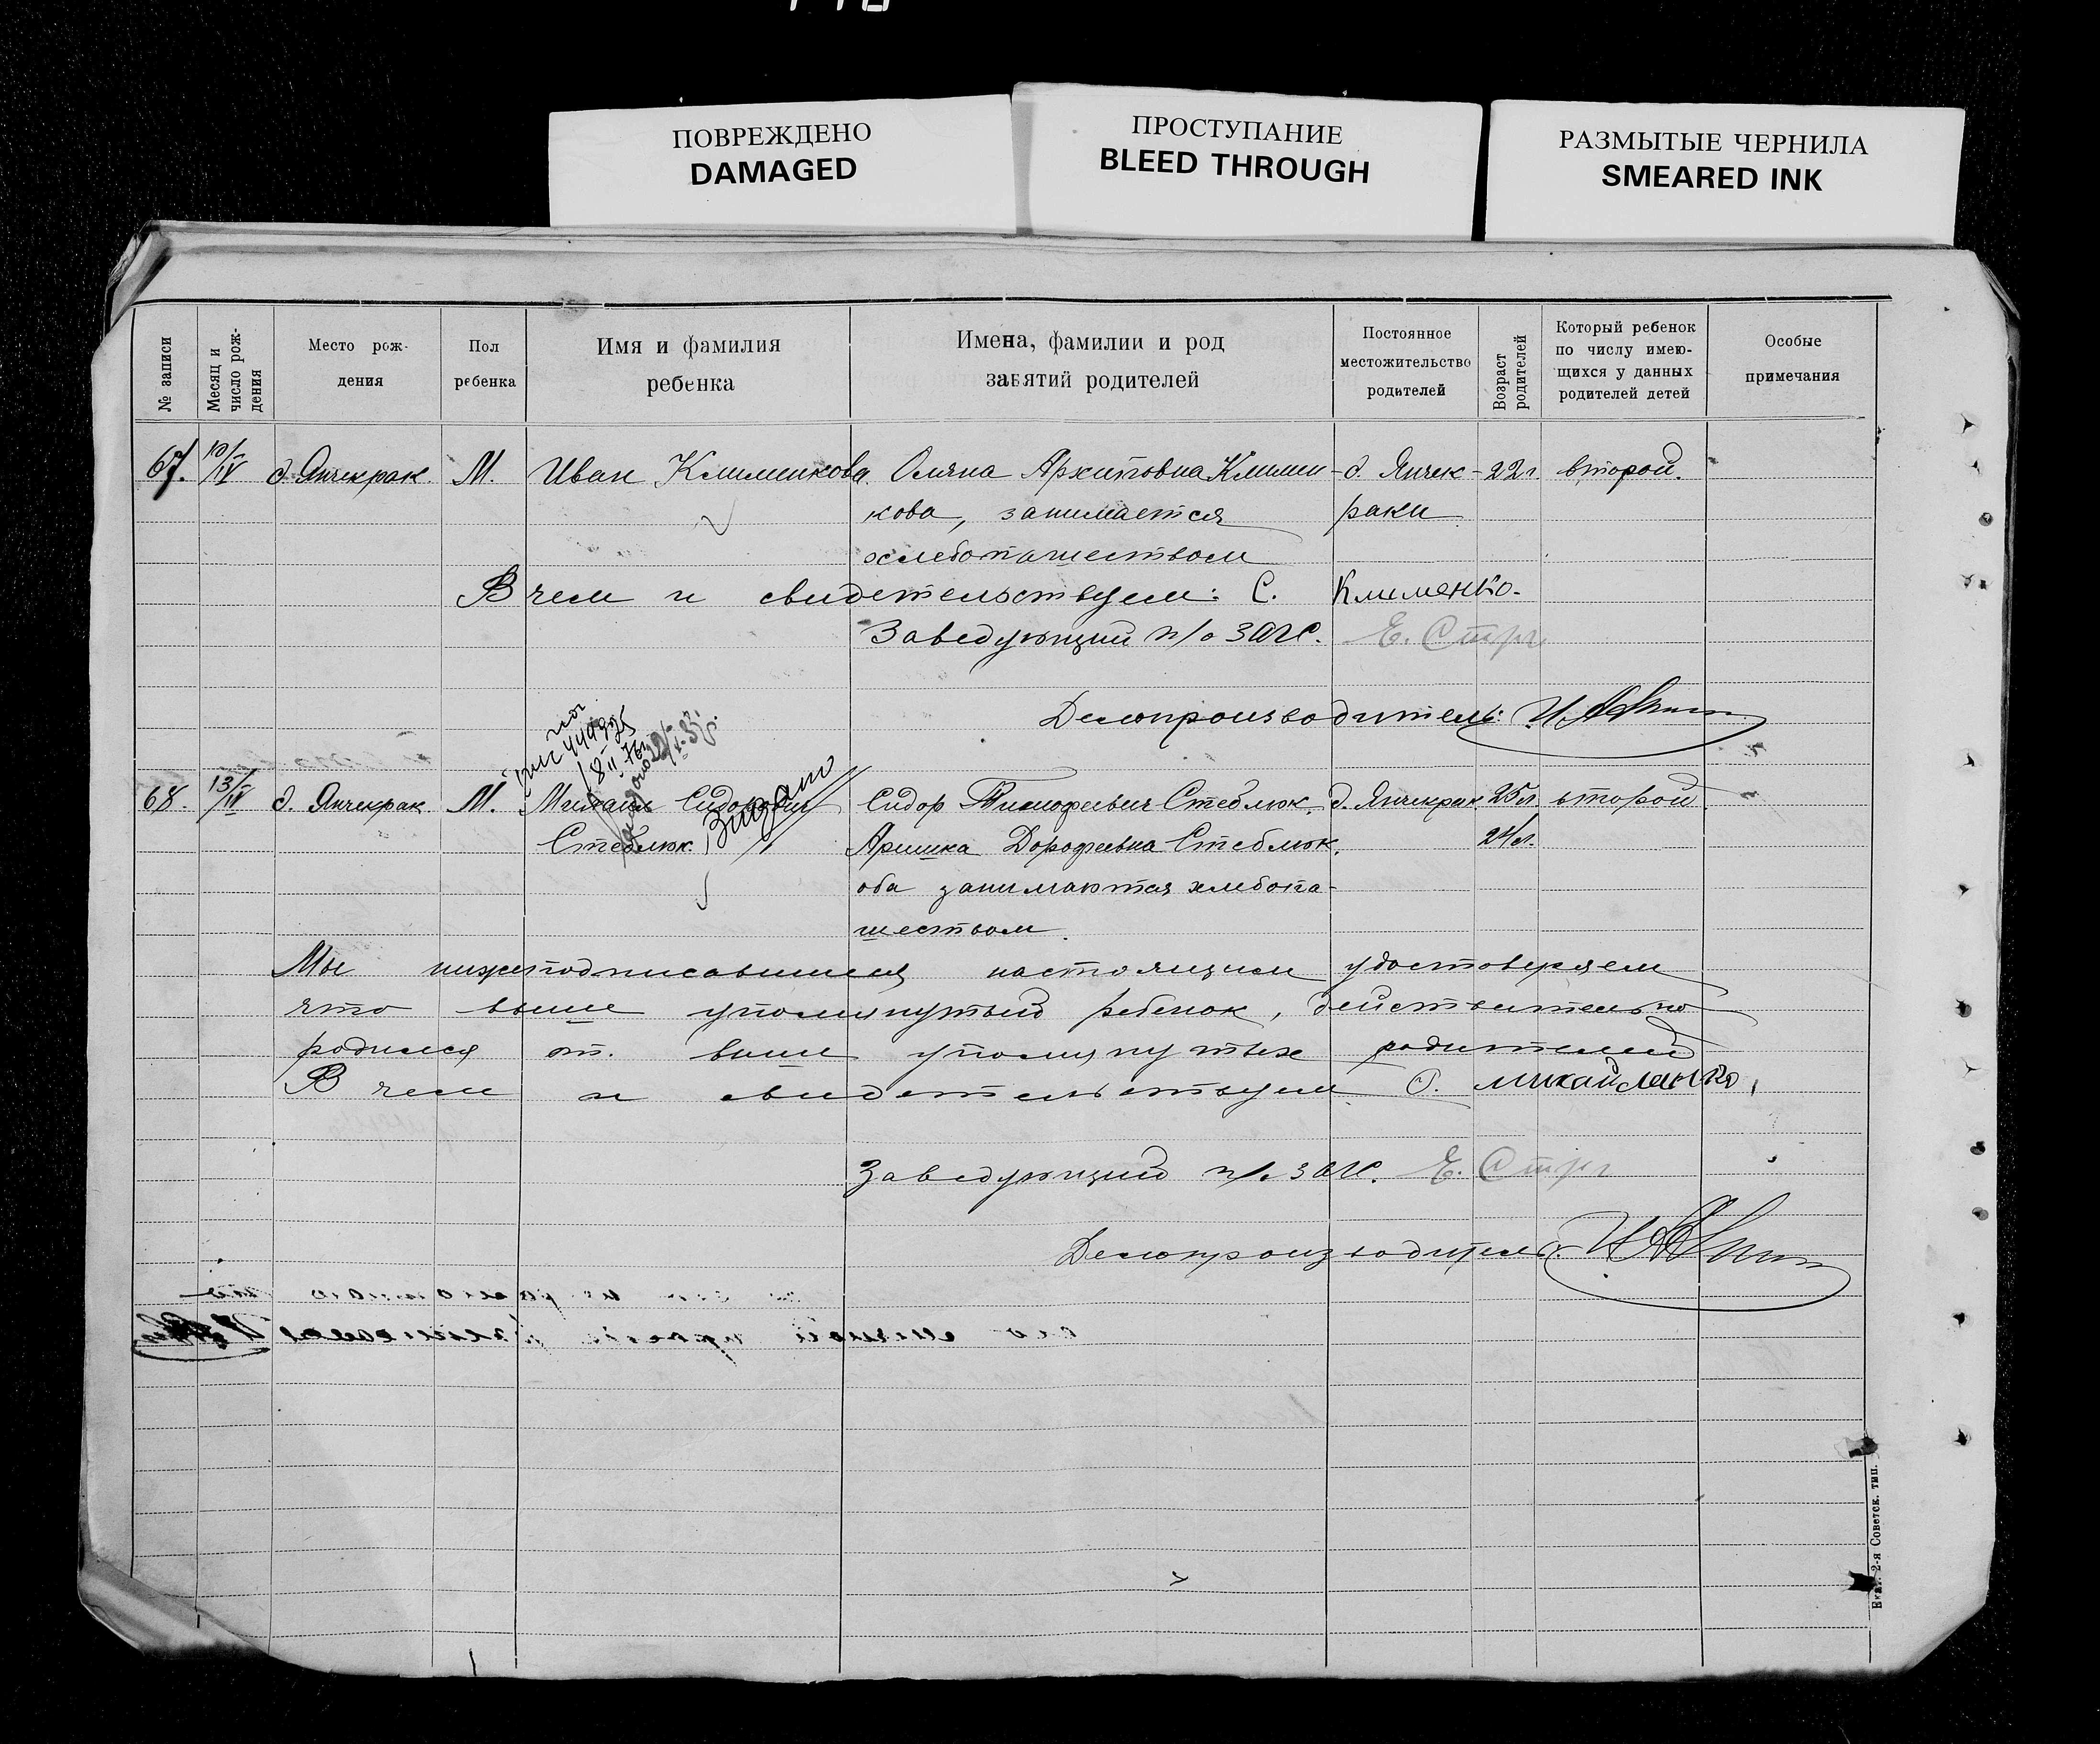 ПОВРЕЖДЕНО
DAMAGED
ПРОСТУПАНИЕ
BLEED THROUGH
РАЗМЫТЫЕ ЧЕРНИЛА
SMEARED INK
№ записи
Месяц и число рождения
Место рож-
дения
Пол
ребенка
Имя и фамилия
ребенка
Имена, фамилии и род
занятий родителей
Постоянное
местожительство
родителей
Возраст
родителей
Который ребенок
по числу имею-
щихся у данных
родителей детей
Особые
примечания
67. 10/IV д. Янчекрак. М. Иван Клименкова. Оляна Архиповна Климен- д. Янчек- 22 г. второй.
кова, занимается раки
хлебопашеством
В чем и свидетельствуем: С. Клименко.
Заведующий п/о ЗАГС. Е.
Делопроизводитель:
68. 13/IV д. Янчекрак М. Михаил Сидорович Сидор Тимофеевич Стеблюк. д. Янчекрак 25 л. второй
Стеблюк. Аришка Дорофеевна Стеблюк, 24 л.
оба занимаются хлебопа-
шеством.
Мы нижеподписавшиеся настоящим удостоверяем
что выше упомянутый ребенок, действительно
родился от. выше упомянутых родителей
В чем и свидетельствуем С. Михайленко,
Заведующий п/о ЗАГС. Е.
Делопроизводитель:
Екат. 2-я Советск. тип.